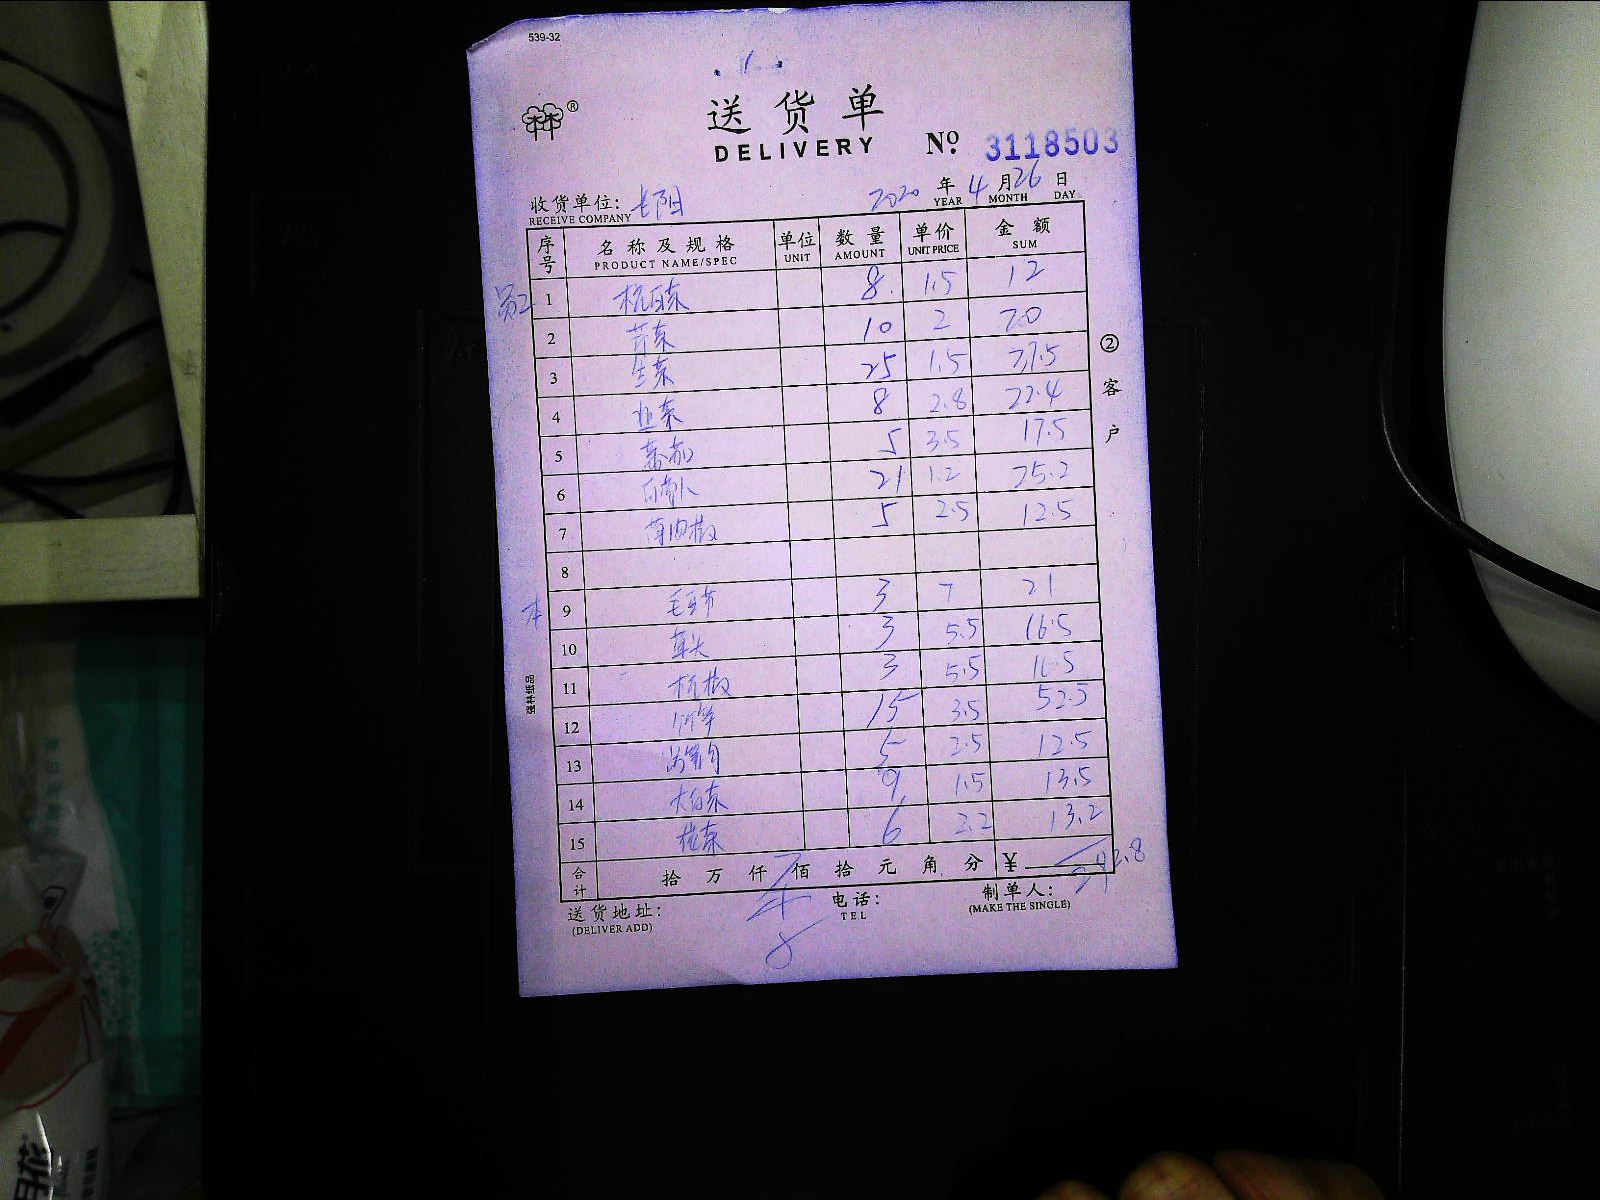 539-32
®
送货单
DELIVERY
No. 3118503
收货单位: 长阳
RECEIVE COMPANY
2020 年 4 月 26 日
YEAR MONTH DAY
序号 名称及规格 单位 数量 单价 金额
PRODUCT NAME/SPEC UNIT AMOUNT UNIT PRICE SUM
员工 1 杭白菜 8. 1.5 12
2 芹菜 10 2 20
3 生菜 25 1.5 37.5
4 韭菜 8 2.8 22.4
5 番茄 5 3.5 17.5
6 白萝卜 21 1.2 25.2
7 薄皮椒 5 2.5 12.5
8
9 毛豆节 3 7 21
10 草头 3 5.5 16.5
11 杭椒 3 5.5 16.5
12 15 3.5 52.5
13 5 2.5 12.5
14 大白菜 9 1.5 13.5
15 花菜 6 2.2 13.2
合计 拾 万 仟 佰 拾 元 角 分 ¥
送货地址:
(DELIVER ADD)
电话:
TEL
制单人:
(MAKE THE SINGLE)
②客户
强林纸品